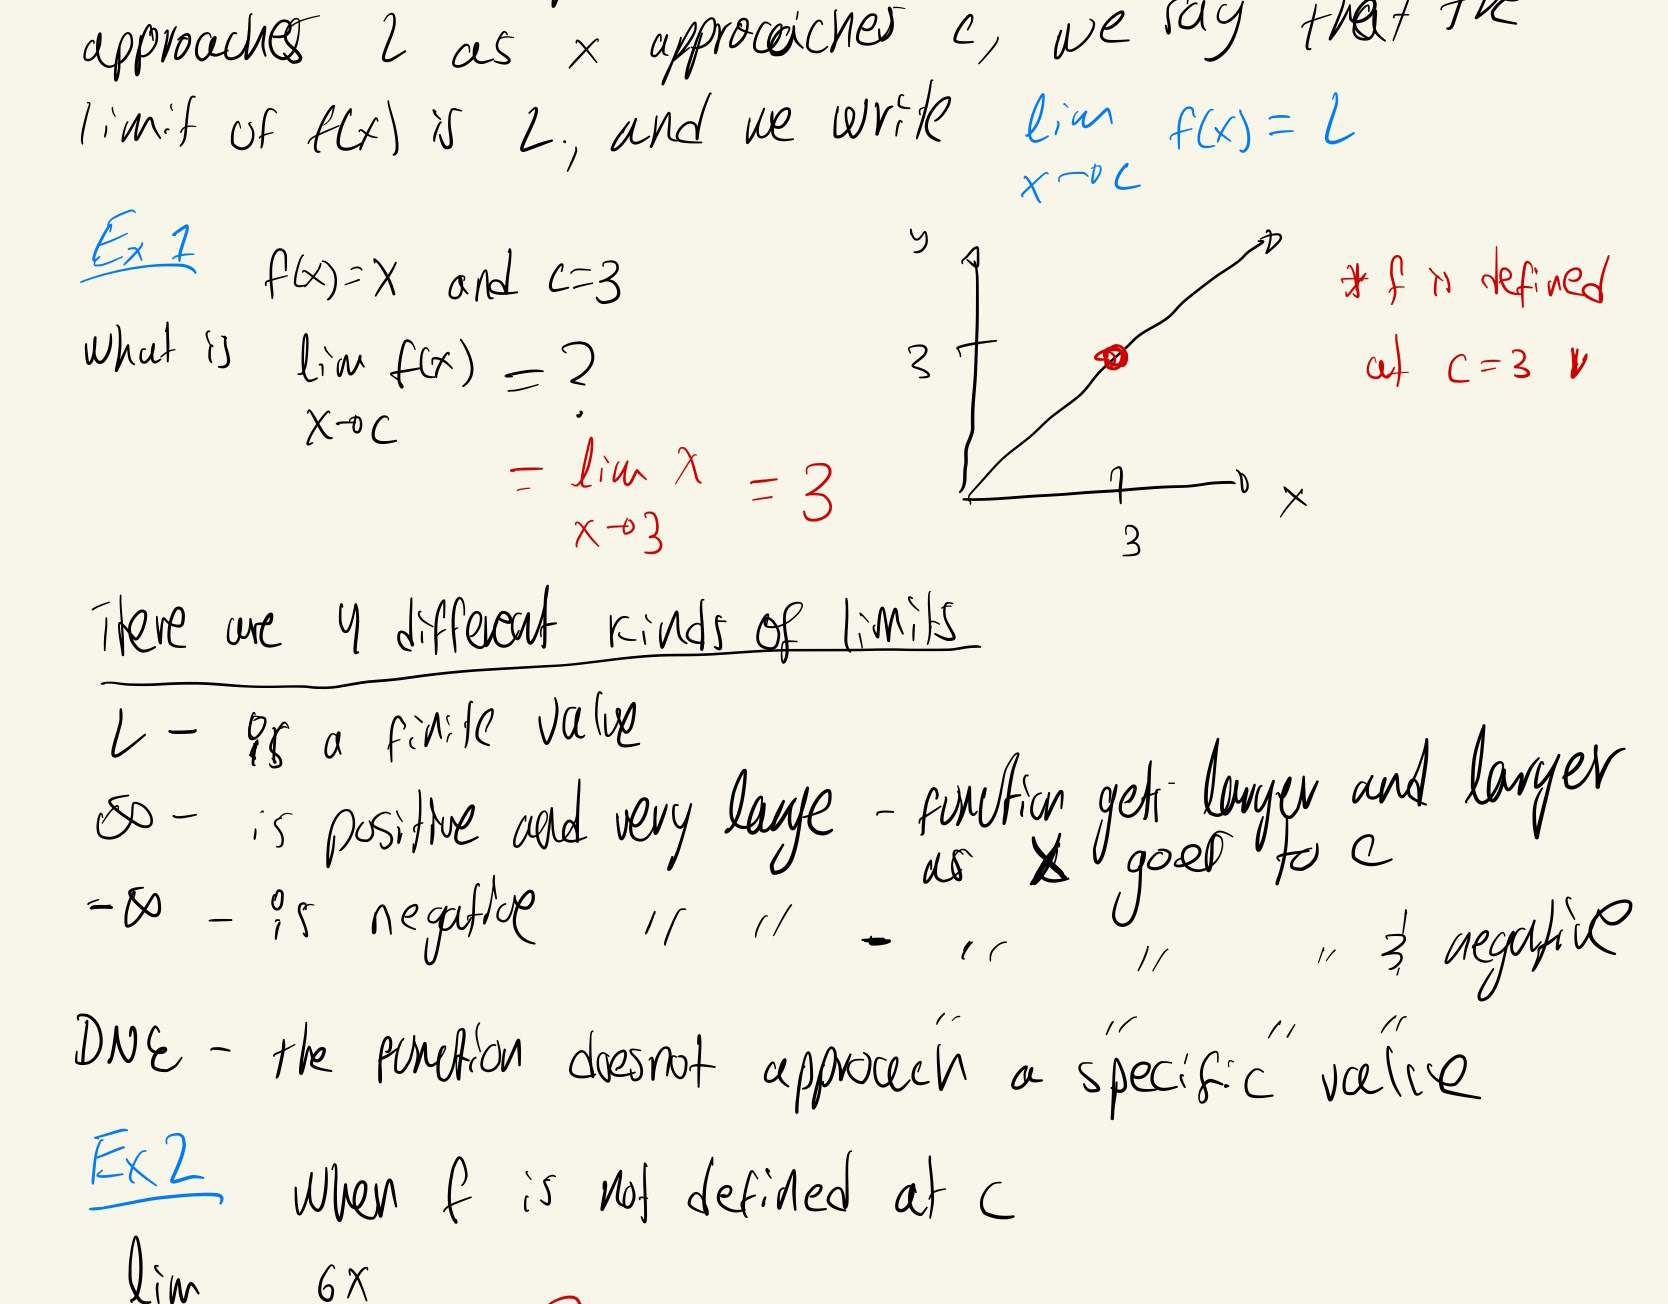 approaches L as x approaches c, we say that the
limit of f(x) is L, and we write lim f(x) = L
x→c
Ex 1
f(x)=x and c=3
what is lim f(x) = ?
x→c
= lim x = 3
x→3
y
3
3
x
* f is defined
at c=3 ✓
There are 4 different kinds of limits
L - is a finite value
∞ - is positive and very large - function gets larger and larger
as x goes to c
-∞ - is negative " " - " " " & negative
" " " "
DNE - the function doesnot approach a specific value
Ex 2 when f is not defined at c
lim 6x